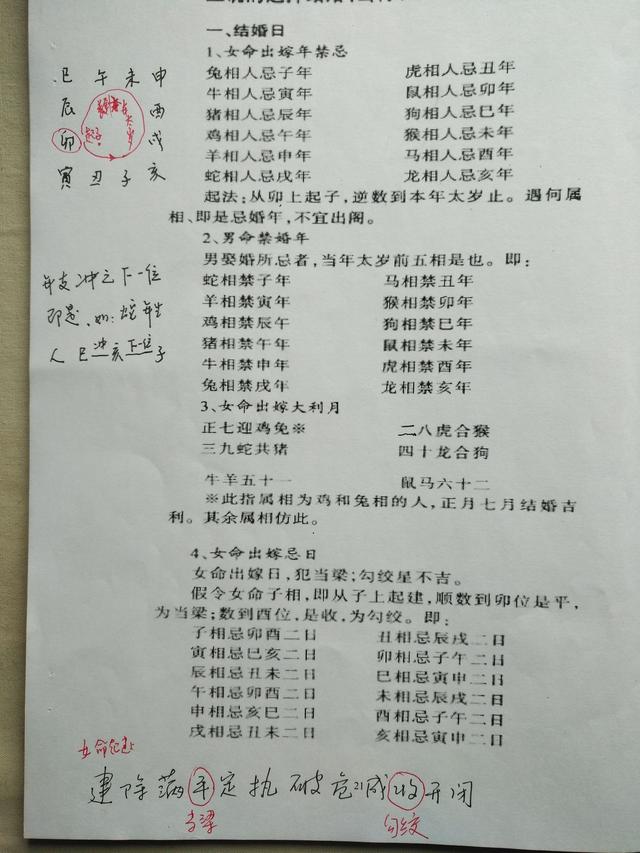 一、结婚日
1、女命出嫁年禁忌
兔相人忌子年 虎相人忌丑年
牛相人忌寅年 鼠相人忌卯年
猪相人忌辰年 狗相人忌巳年
鸡相人忌午年 猴相人忌未年
羊相人忌申年 马相人忌酉年
蛇相人忌戌年 龙相人忌亥年
起法:从卯上起子,逆数到本年太岁止。遇何属
相、即是忌婚年,不宜出阁。
2、男命禁婚年
男娶婚所忌者,当年太岁前五相是也。即:
蛇相禁子年 马相禁丑年
羊相禁寅年 猴相禁卯年
鸡相禁辰午 狗相禁巳年
猪相禁午年 鼠相禁未年
牛相禁申年 虎相禁酉年
兔相禁戌年 龙相禁亥年
3、女命出嫁大利月
正七迎鸡兔※ 二八虎合猴
三九蛇共猪 四十龙合狗
牛羊五十一 鼠马六十二
※此指属相为鸡和兔相的人,正月七月结婚吉
利。其余属相仿此。
4、女命出嫁忌日
女命出嫁日,犯当梁;勾绞星不吉。
假令女命子相,即从子上起建,顺数到卯位是平,
为当梁;数到酉位,是收,为勾绞。即:
子相忌卯酉二日 丑相忌辰戌二日
寅相忌巳亥二日 卯相忌子午二日
辰相忌丑未二日 巳相忌寅申二日
午相忌卯酉二日 未相忌辰戌二日
申相忌亥巳二日 酉相忌子午二日
戌相忌丑未二日 亥相忌寅申二日
巳 午 未 申
辰 酉
卯 起子 戌
寅 丑 子 亥
年支冲之下一位
即是、如:蛇年生
人 巳冲亥下一位子
女命起建
建 除 满 平 定 执 破 危 成 收 开 闭
当梁 勾绞